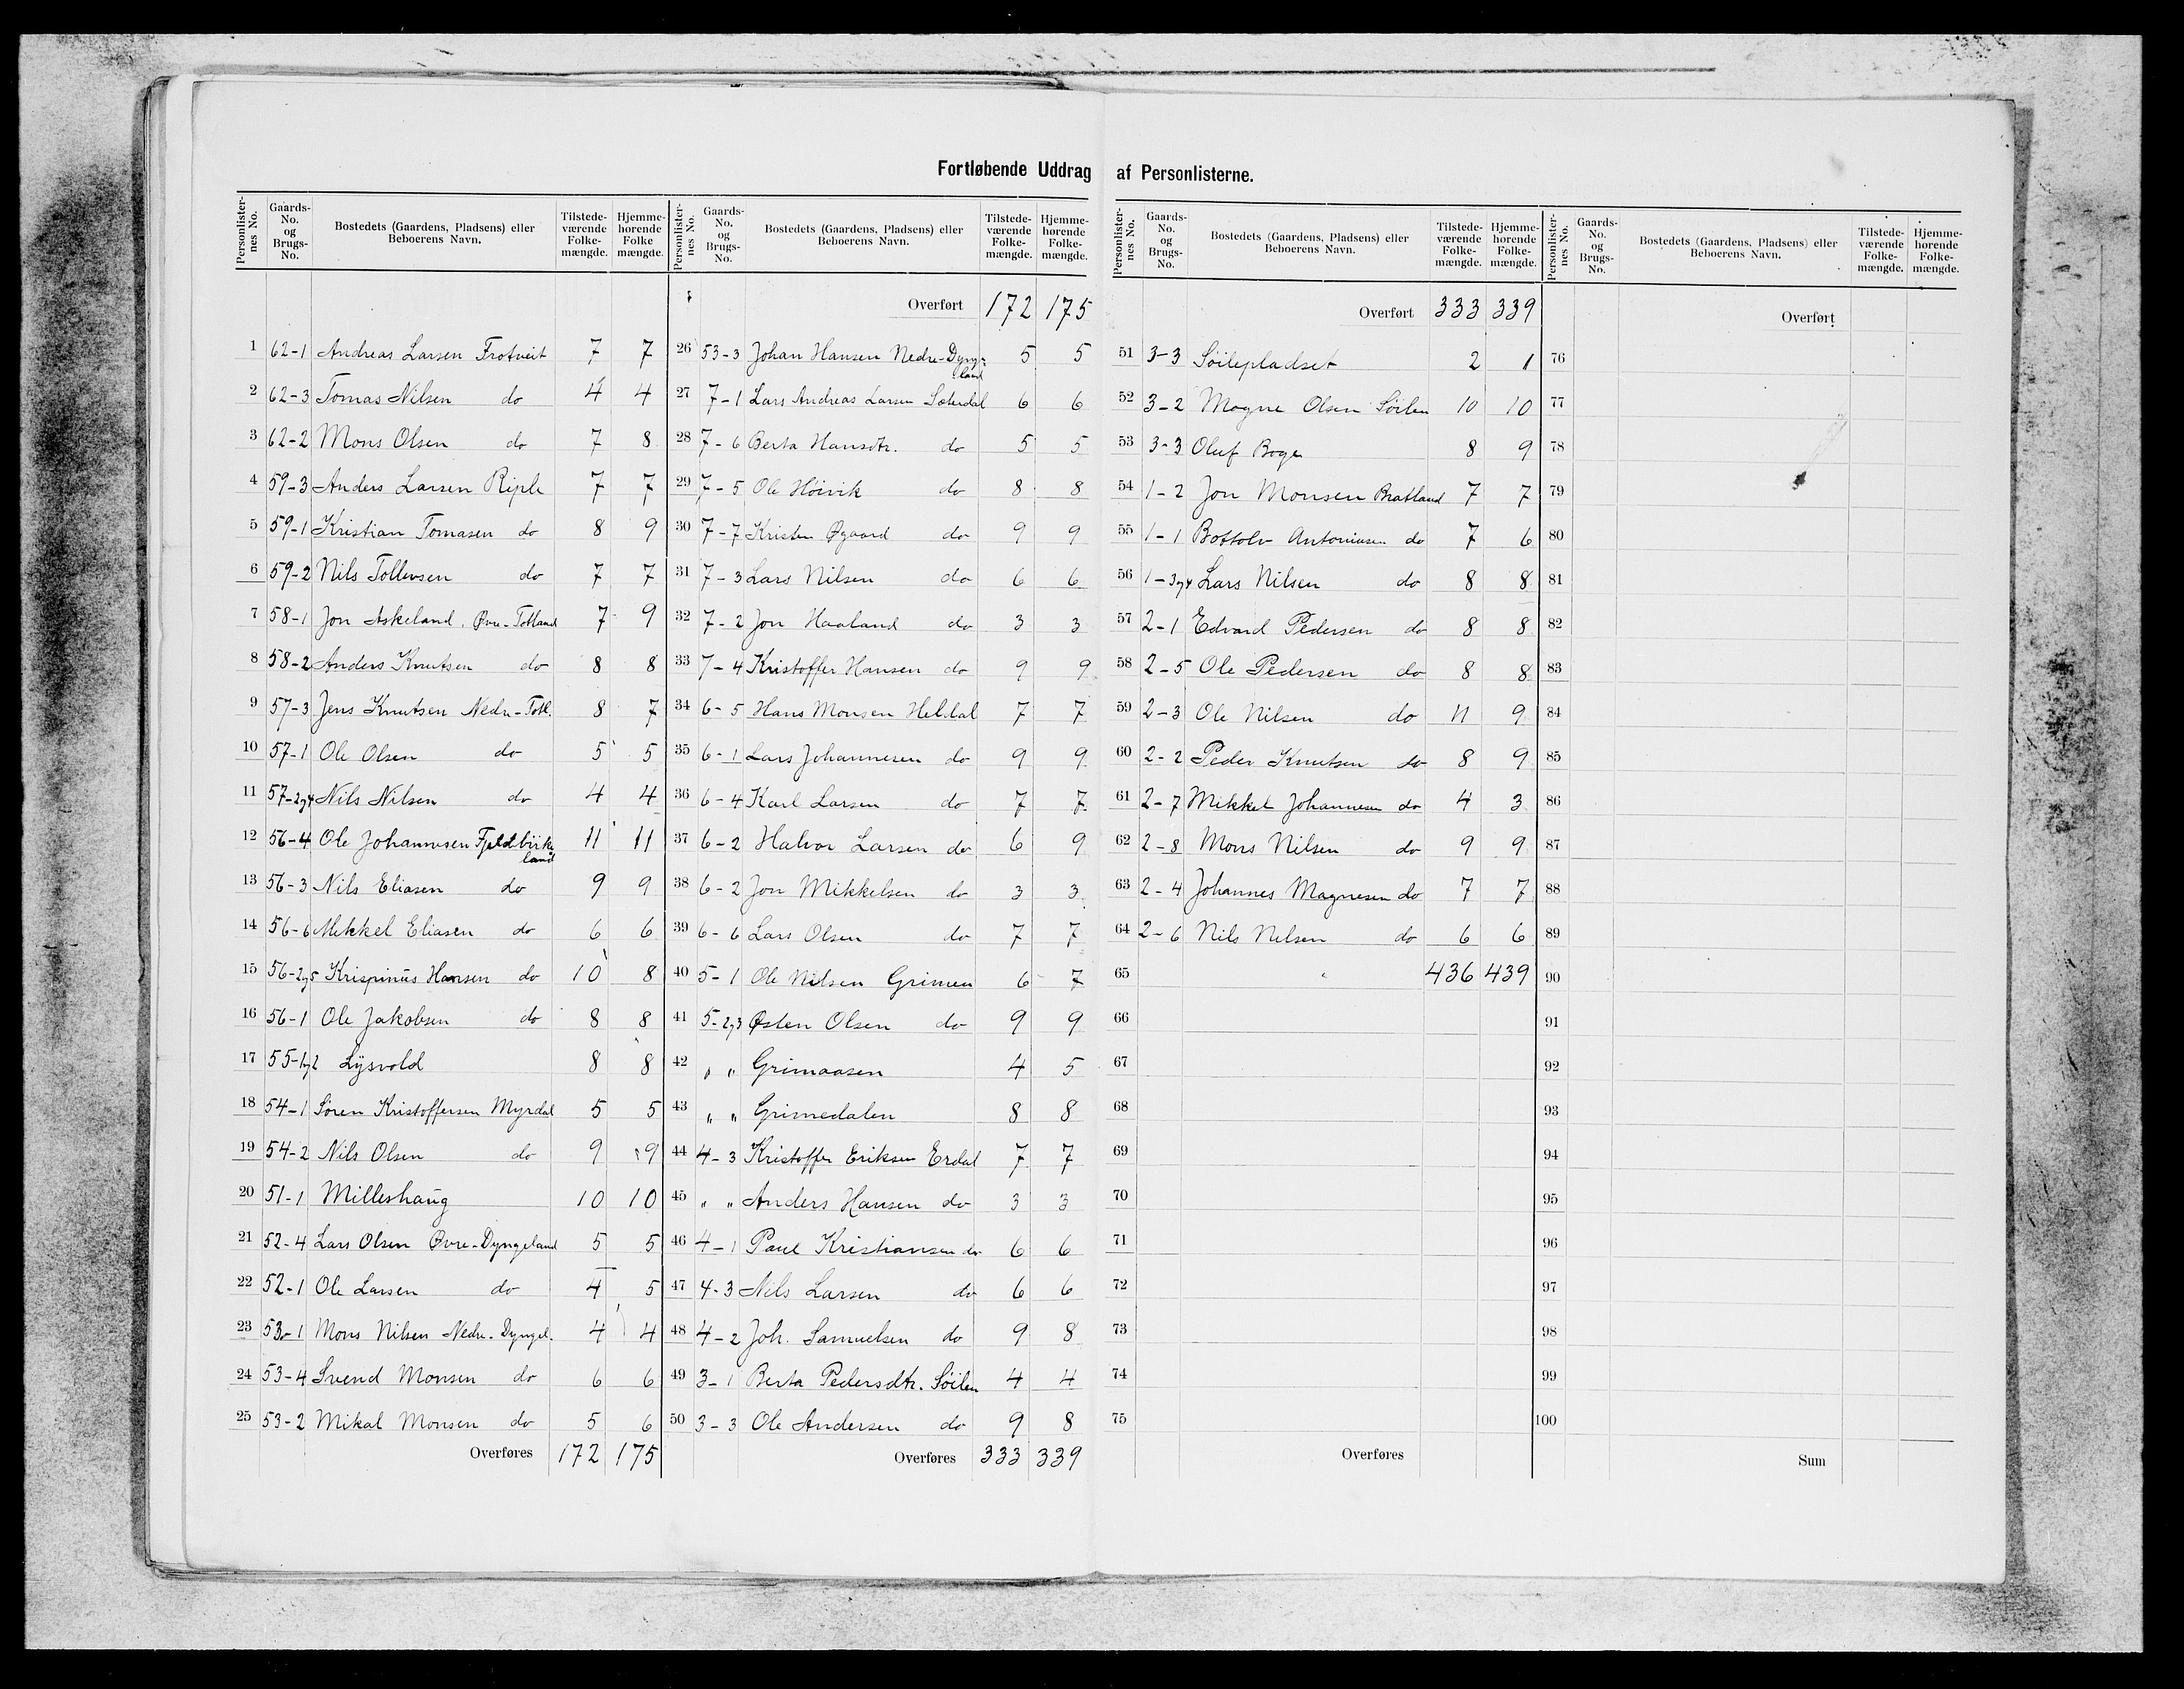 Fortløbende Uddrag af Personlisterne.
Personlister-nes No. Gaards-No. og Brugs-No. Bostedets (Gaardens, Pladsens) eller Beboerens Navn. Tilstede-værende Folke-mængde. Hjemme-hørende Folke mængde.
1 62-1 Andreas Larsen Frotveit 7 7
2 62-3 Tomas Nilsen do 4 4
3 62-2 Mons Olsen do 7 8
4 59-3 Anders Larsen Riple 7 7
5 59-1 Kristian Tomasen do 8 9
6 59-2 Nils Tollevsen do 7 7
7 58-1 Jon Askeland, Øvre-Totland 7 9
8 58-2 Anders Knutsen do 8 8
9 57-3 Jens Knutsen Nedre-Totl. 8 7
10 57-1 Ole Olsen do 5 5
11 57-2og4 Nils Nilsen do 4 4
12 56-4 Ole Johannesen Fjeldbirkeland 11 11
13 56-3 Nils Eliasen do 9 9
14 56-6 Mikkel Eliasen do 6 6
15 56-2og5 Krispinus Hansen do 10 8
16 56-1 Ole Jakobsen do 8 8
17 55-1og2 Lysvold 8 8
18 54-1 Søren Kristoffersen Myrdal 5 5
19 54-2 Nils Olsen do 9 9
20 51-1 Milleshaug 10 10
21 52-4 Lars Olsen Øvre-Dyngeland 5 5
22 52-1 Ole Larsen do 4 5
23 53-1 Mons Nilsen Nedre-Dyngel. 4 4
24 53-4 Svend Monsen do 6 6
25 53-2 Mikal Monsen do 5 6
Overføres 172 175
Personlister-nes No. Gaards-No. og Brugs-No. Bostedets (Gaardens, Pladsens) eller Beboerens Navn. Tilstede-værende Folke-mængde. Hjemme-hørende Folke-mængde.
Overført 172 175
26 53-3 Johan Hansen Nedre-Dyngeland 5 5
27 7-1 Lars Andreas Larsen Sæterdal 6 6
28 7-6 Berta Hansdtr. do 5 5
29 7-5 Ole Høivik do 8 8
30 7-7 Kristen Øgaard do 9 9
31 7-3 Lars Nilsen do 6 6
32 7-2 Jon Haaland do 3 3
33 7-4 Kristoffer Hansen do 9 9
34 6-5 Hans Monsen Heldal 7 7
35 6-1 Lars Johannesen do 9 9
36 6-4 Karl Larsen do 7 7
37 6-2 Halvor Larsen do 6 9
38 6-2 Jon Mikkelsen do 3 3
39 6-6 Lars Olsen do 7 7
40 5-1 Ole Nilsen Grimen 6 7
41 5-2og3 Østen Olsen do 9 9
42 " " Grimaasen 4 5
43 " " Grimedalen 8 8
44 4-3 Kristoffer Eriksen Erdal 7 7
45 " " Anders Hansen do 3 3
46 4-1 Paul Kristiansen do 6 6
47 4-3 Nils Larsen do 6 6
48 4-2 Joh. Samuelsen do 9 8
49 3-1 Berta Pedersdtr. Søilen 4 4
50 3-3 Ole Andersen do 9 8
Overføres 333 339
Personlister-nes No. Gaards-No. og Brugs-No. Bostedets (Gaardens, Pladsens) eller Beboerens Navn. Tilstede-værende Folke-mængde. Hjemme-hørende Folke-mængde.
Overført 333 339
51 3-3 Søilepladset 2 1
52 3-2 Mogne Olsen Søilen 10 10
53 3-3 Oluf Boge 8 9
54 1-2 Jon Monsen Bratland 7 7
55 1-1 Bottolv Antoniusen do 7 6
56 1-3og4 Lars Nilsen do 8 8
57 2-1 Edvard Pedersen do 8 8
58 2-5 Ole Pedersen do 8 8
59 2-3 Ole Nilsen do 11 9
60 2-2 Peder Knutsen do 8 9
61 2-7 Mikkel Johannesen do 4 3
62 2-8 Mons Nilsen do 9 9
63 2-4 Johannes Magnesen do 7 7
64 2-6 Nils Nilsen do 6 6
65 436 439
66
67
68
69
70
71
72
73
74
75
Overføres
Personlister-nes No. Gaards-No. og Brugs-No. Bostedets (Gaardens, Pladsens) eller Beboerens Navn. Tilstede-værende Folke-mængde. Hjemme-hørende Folke-mængde.
Overført
76
77
78
79
80
81
82
83
84
85
86
87
88
89
90
91
92
93
94
95
96
97
98
99
100
Sum